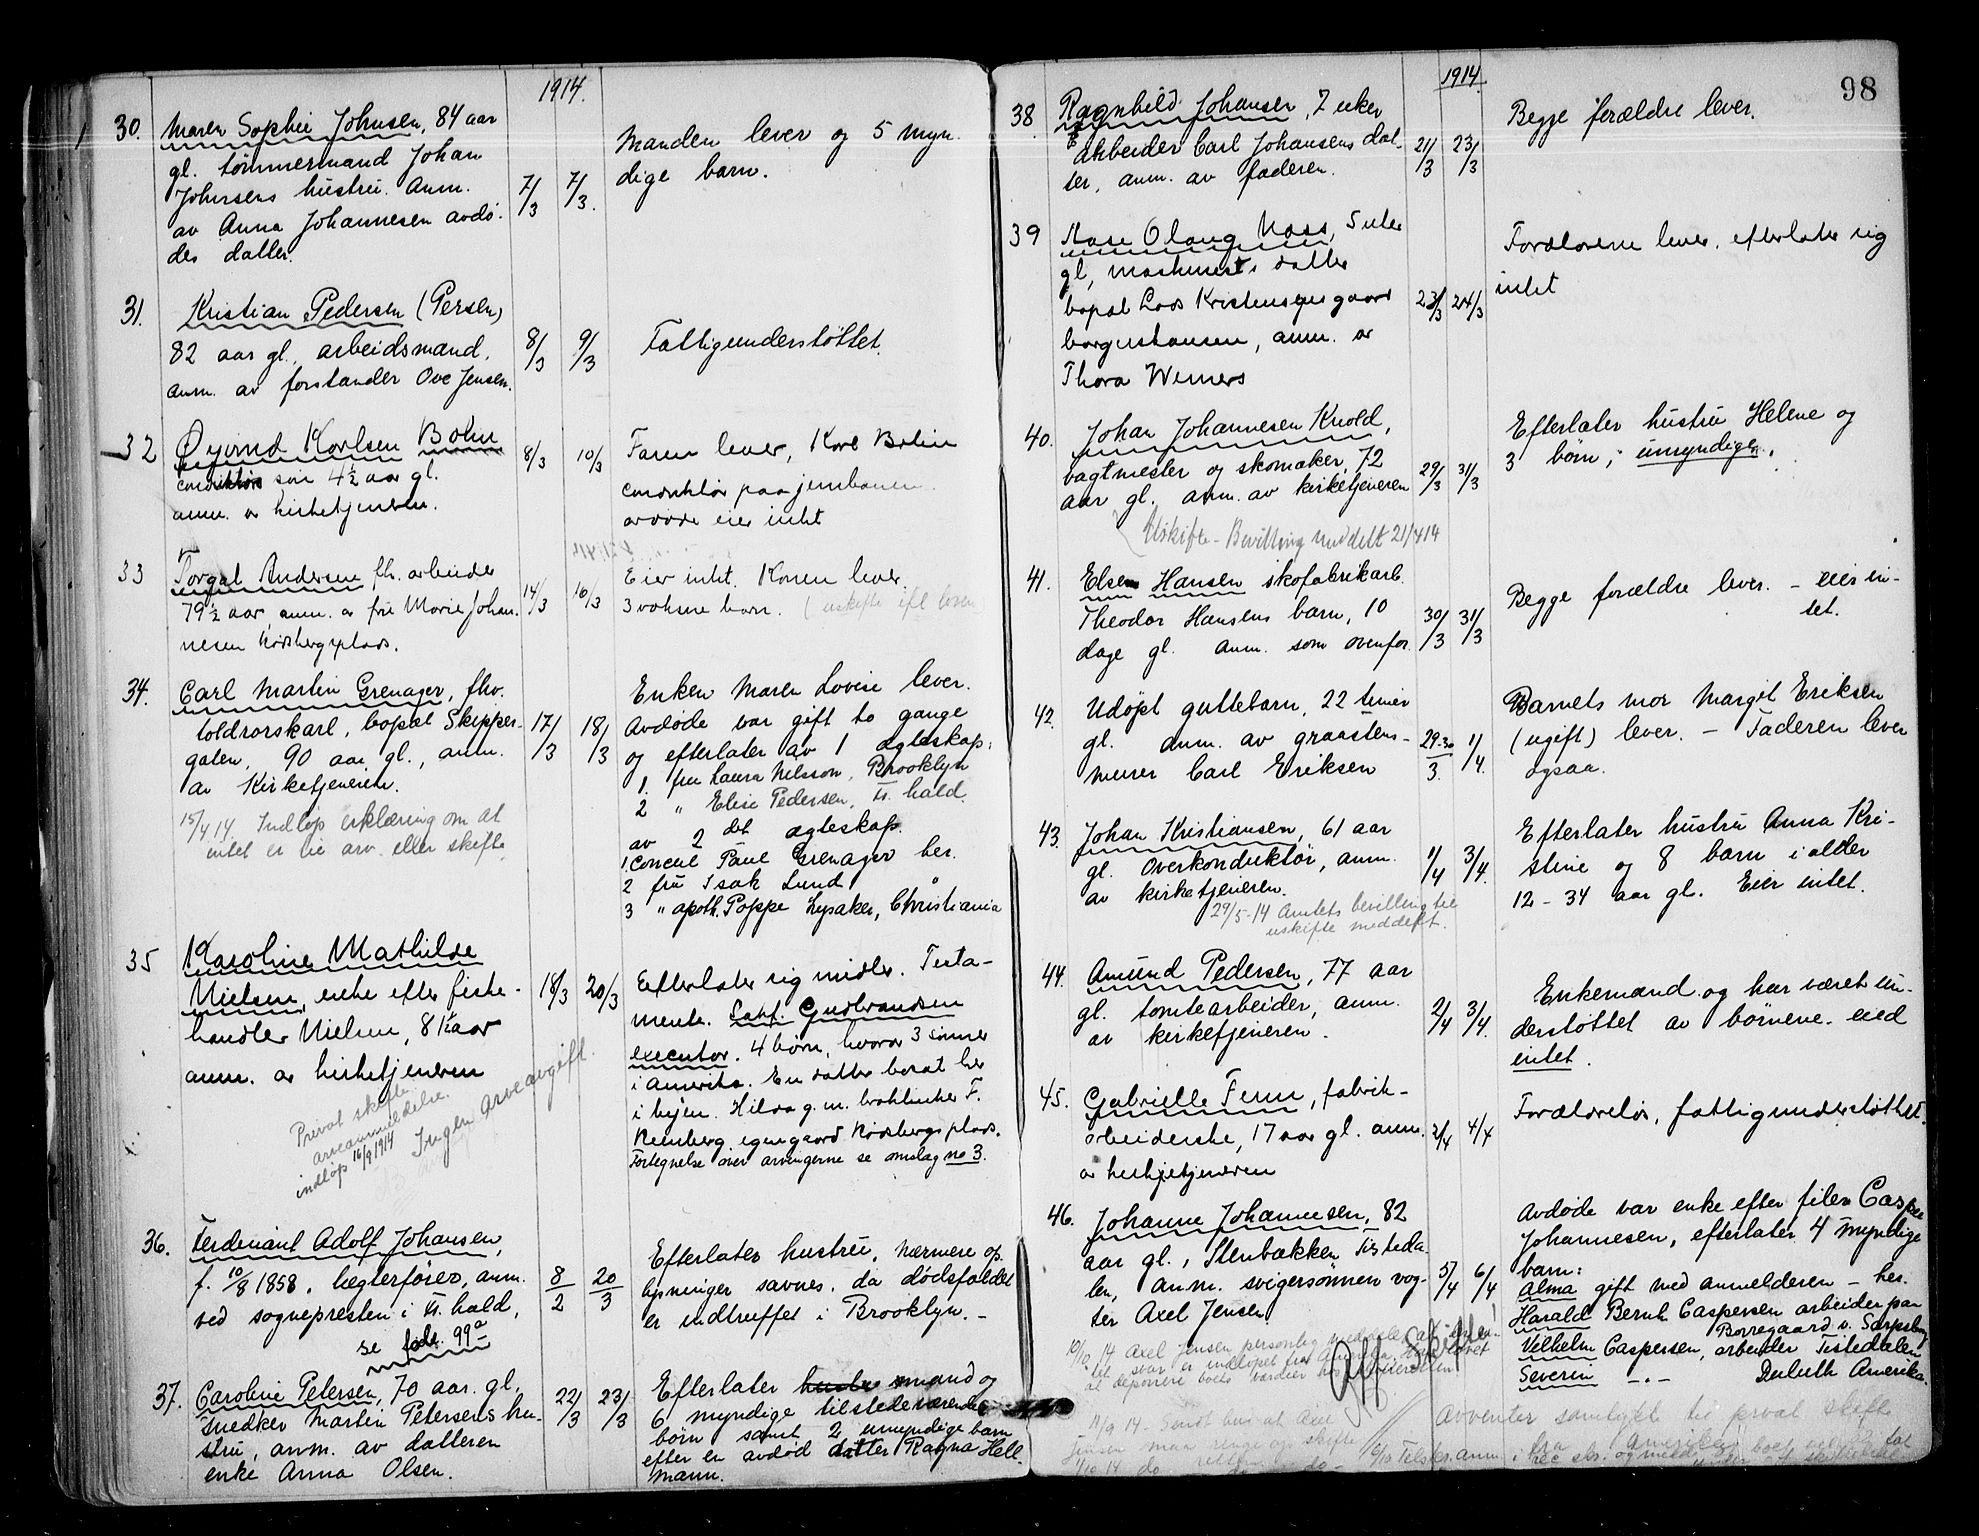 1914.
30. Maren Sophie Johnsen, 84 aar
gl. tømmermand Johan
Johnsens hustru. Anm.
av Anna Johannesen avdø-
des datter.
7/3 7/3.
Manden lever og 5 myn-
dige barn.
31. Kristian Pedersen (Persen)
82 aar gl. arbeidsmand,
anm. av forstander Ove Jensen.
8/3 9/3
Fattigunderstøttet.
32 Øyvind Karlsen Bohn
conduktørs søn 4½ aar gl.
anm. av kirketjeneren.
8/3 10/3
Faren lever, Karl Bohn
conduktør paa jernbanen
avdøde eier intet
33 Torgal Andersen fh. arbeider
79½ aar, anm. av fru Marie Johan-
nesen Rødsbergplads.
14/3 16/3
Eier intet. Konen lever.
3 voksne barn. (uskifte ifl loven
34. Carl Martin Grenager, fhv.
toldrorskarl, bopæl Skipper-
gaten, 90 aar gl., anm.
av Kirketjeneren.
17/3 18/3
15/4 14. Indløp erklæring om at
intet er til arv eller skifte
Enken Maren Lovise lever.
Avdøde var gift to gange
og efterlater av 1 ægteskap:
1. fru Laura Nelsson, Brooklyn
2 " Elise Pedersen, Fr.hald.
av 2det ægteskap.
1. Concul Paul Grenager her.
2 fru Isak Lund "
3 " apoth. Poppe Lysaker, Christiania
35 Karoline Mathilde
Nielsen, enke efter fiske-
handler Nielsen, 81½ aar
anm. av kirketjeneren
18/3 20/3
Privat skifte
arveanmeldelse.
indløp 16/9 1914
Ingen arveavgift.
Efterlater sig midler. Testa-
mente. Sakf. Gudbrandsen
executor. 4 børn, hvorav 3 sønner
i Amerika. En datter bosat her
i byen. Hilda g. m. Blokkmaker F.
Reinberg, egen gaard Rødsbergs plads.
Fortegnelse over arvingerne se omslag no 3.
36. Ferdinant Adolf Johansen,
f. 10/8 1858, lægterfører, anm.
ved sognepresten i Fr.hald,
se fole. 99a
8/2 20/3
Efterlater hustru, nærmere op-
lysninger savnes, da dødsfaldet
er indtruffet i Brooklyn. -
37. Caroline Petersen, 70 aar. gl.
snedker Martin Petersens hu-
stru, anm. av datteren
enke Anna Olsen.
22/3 23/3
Efterlater mand og
6 myndige tilstedeværende
børn samt 2 umyndige barn
efter en avdød datter Ragna Hell-
mann.
98
1914.
38 Ragnhild Johansen, 7 uker
arbeider Carl Johansens dat-
ter, anm. av faderen.
21/3 23/3
Begge forældre lever.
39 Aase Olaug Moss, 5 uker
gl, maskinists datter
bopæl Lods Kristensens gaard
borgerskansen, anm. av
Thora Werners
23/3 24/3
Forældrene lever, efterlater sig
intet
40. Johan Johannesen Knold,
vagtmester og skomaker, 72
aar gl. anm. av kirketjeneren
29/3 31/3
Uskifte - Bevilling meddelt 21/4 14
Efterlater hustru Helene og
3 børn; umyndige.
41. Else Hansen skofabrikarb.
Theodor Hansens barn, 10
dage gl. anm. som ovenfor
30/3 31/3
Begge forældre lever. - eier in-
tet.
42. Udøpt guttebarn, 22 timer
gl. anm. av graastens-
murer Carl Eriksen
29-30/3. 1/4.
Barnets mor Margit Eriksen
(ugift) lever. - Faderen lever
ogsaa.
43. Johan Kristiansen, 61 aar
gl. Overkonduktør, anm.
av kirketjeneren.
1/4 3/4.
29/5-14 Amtets bevilling til
uskifte meddelt.
Efterlater hustru Anna Kri-
stine og 8 barn i alder
12 - 34 aar gl. Eier intet.
44. Amund Pedersen, 77 aar
gl. tomtearbeider, anm.
av kirketjeneren.
2/4 3/4.
Enkemand og har været un-
derstøttet av børnene. eied
intet.
45. Gabrielle Fenn, fabrik-
arbeiderske, 17 aar gl. anm.
av kirkjetjeneren
2/4 4/4
Forældreløs, fattigunderstøttet.
46. Johanne Johannesen, 82
aar gl., Stenbækken Tisteda-
len, anm. svigersønnen vog-
ter Axel Jensen
5/4 6/4
Avdøde var enke efter filer Casper
Johannesen, efterlater 4 myndige
barn:
Alma gift med anmelderen - her.
Harald Bernh. Caspersen arbeider paa
Borregaard v. Sarpsborg
Vilhelm Caspersen, arbeider Tistedalen
Severin -..- Duluth Amerika.
10/10 14 Axel Jensen personlig meddelt at
svar er indløpet fra Amerika
at deponere boets værdier
Off. Skifte!
19/9 14 - Sendt bud at Axel
Jensen maa ringe op skifte
Avventer samtykke til privat skifte
fra Amerika